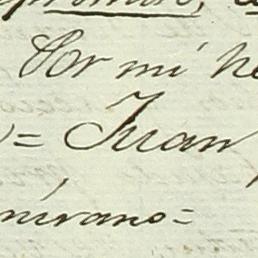 Por mi he
)= Juan
nirano=